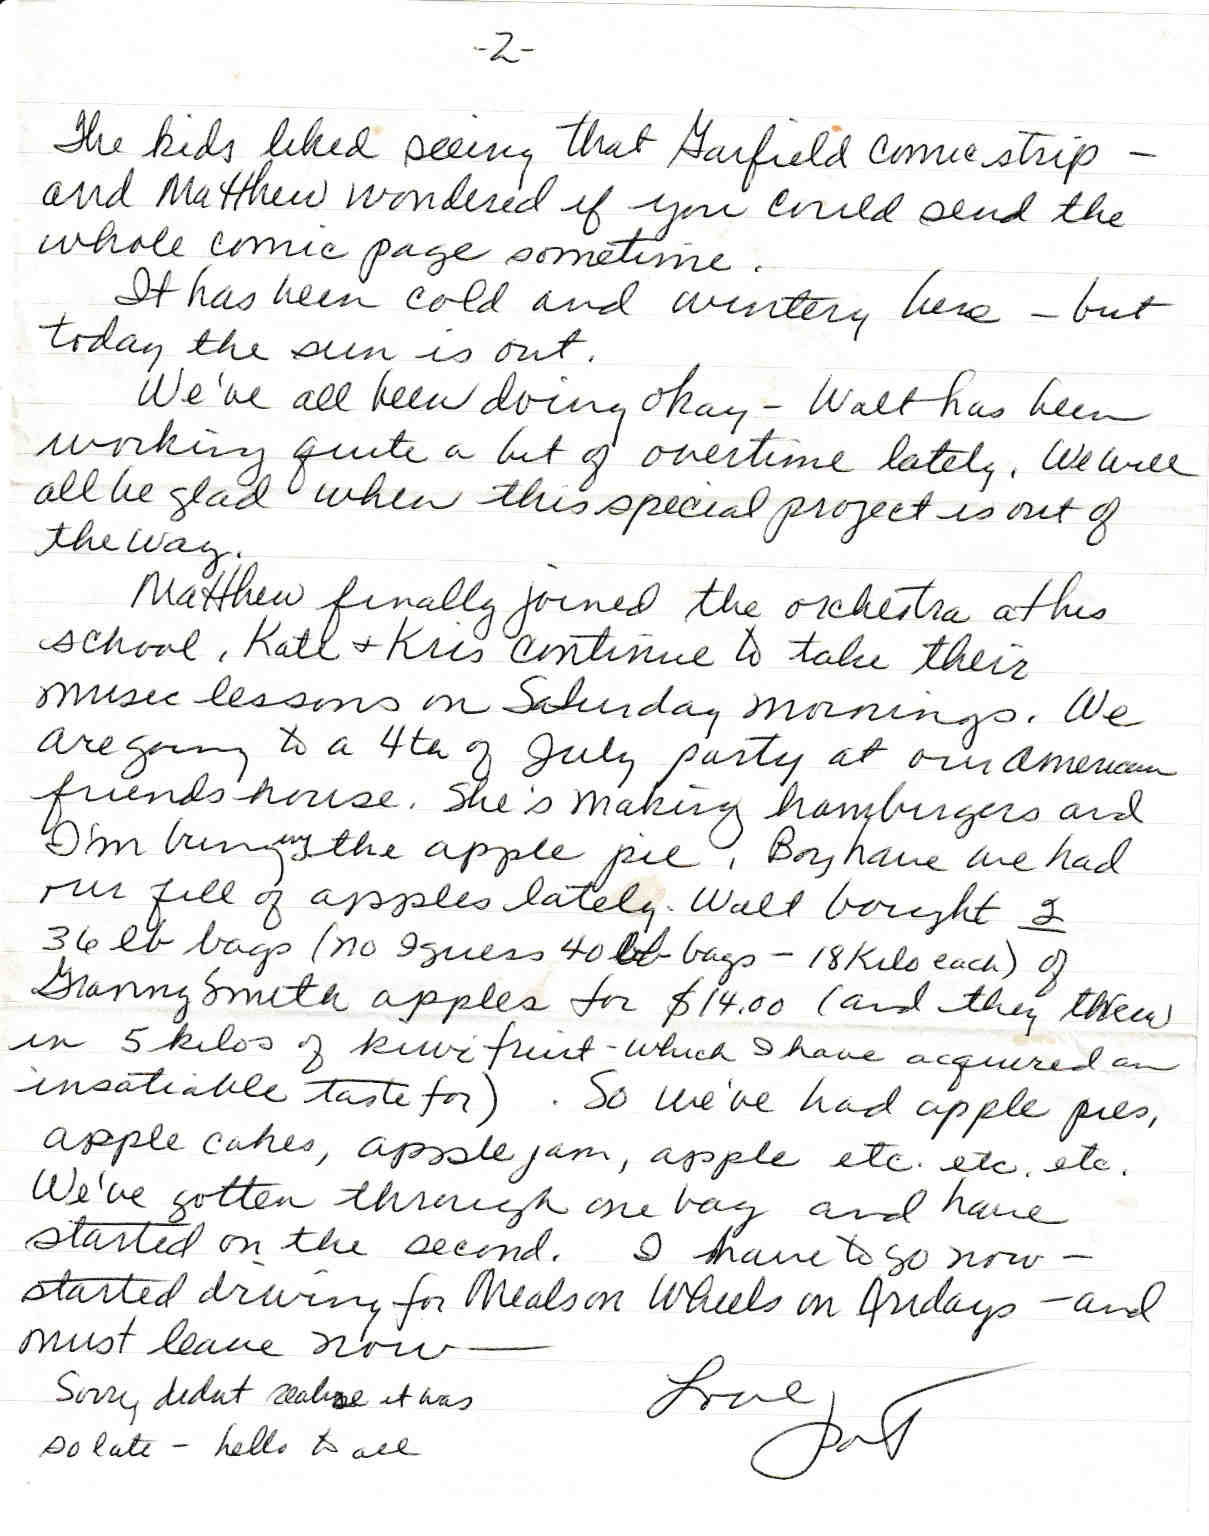 -2-
The kids liked seeing that Garfield comic strip -
and Matthew wondered if you could send the
whole comic page sometime.
It has been cold and wintery here - but
today the sun is out.
We've all been doing okay - Walt has been
working quite a bit of overtime lately. We will
all be glad when this special project is out of
the way.
Matthew finally joined the orchestra at his
school, Kate + Kris continue to take their
music lessons on Saturday mornings. We
are going to a 4th of July party at our American
friends house. She's making hamburgers and
I'm bringing the apple pie. Boy have we had
our fill of apples lately. Walt bought 2
36 lb bags (no I guess 40 lb bags - 18 Kilo each) of
Granny Smith apples for $14.00 (and they threw
in 5 kilos of kiwi fruit - which I have acquired an
insatiable taste for). So we've had apple pies,
apple cakes, apple jam, apple etc. etc. etc.
We've gotten through one bag and have
started on the second. I have to go now -
started driving for Meals on Wheels on Fridays - and
must leave now —
Love
Sorry, didnt realize it was
so late - hello to all
Pat